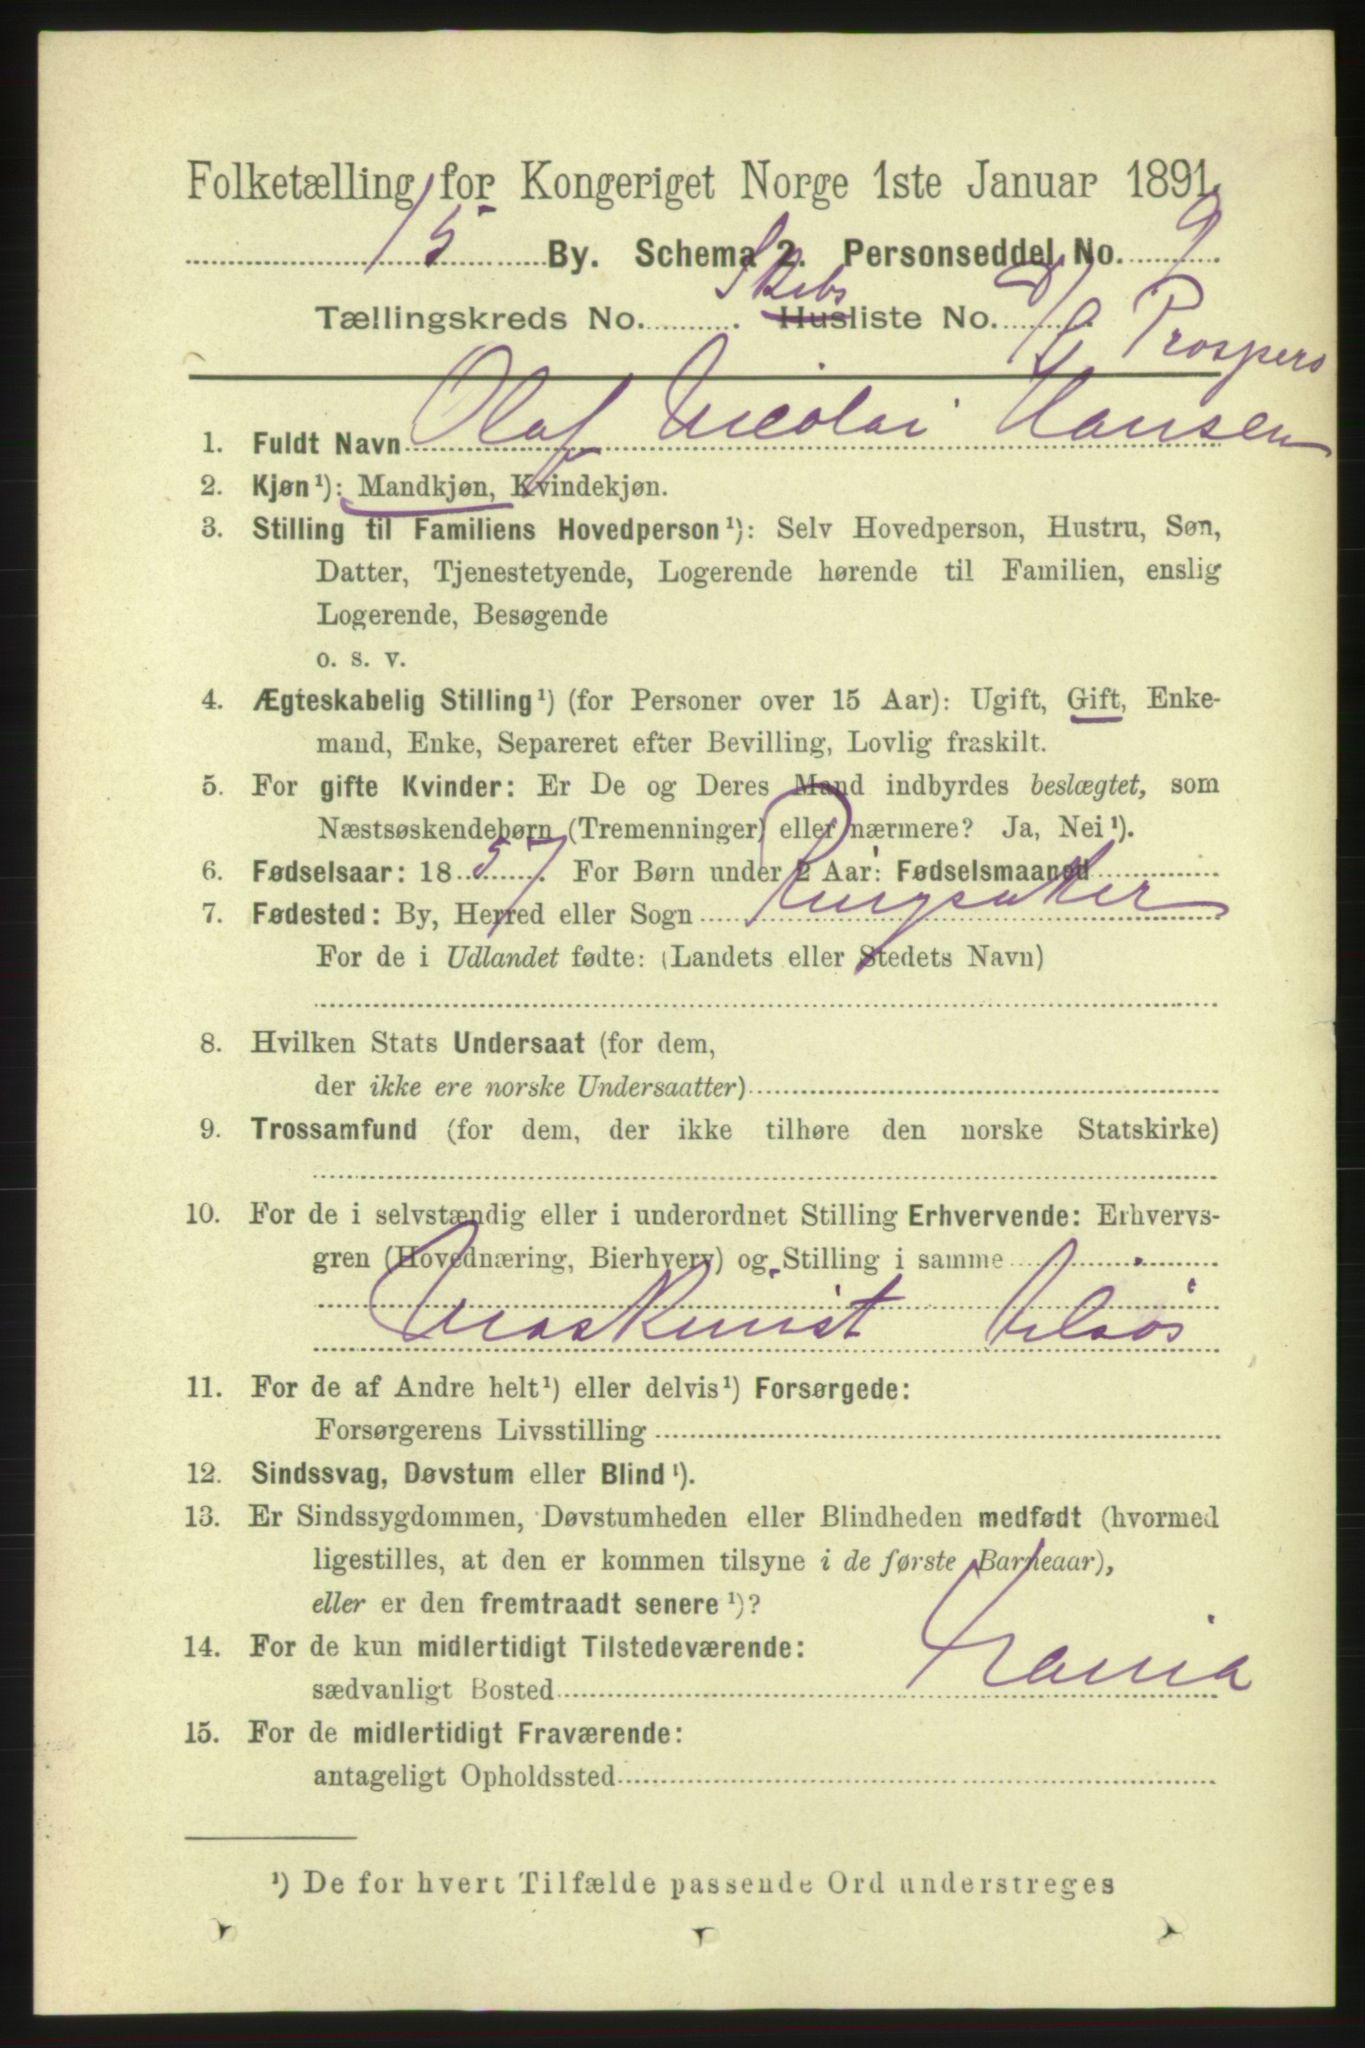 Folketælling for Kongeriget Norge 1ste Januar 1891.
15 By. Schema 2. Personseddel No. 9
Tællingskreds No. . Skibs Husliste No. D/S Prospero
1. Fuldt Navn Olaf Nicolai Hansen
2. Kjøn¹): Mandkjøn, Kvindekjøn.
3. Stilling til Familiens Hovedperson¹): Selv Hovedperson, Hustru, Søn,
Datter, Tjenestetyende, Logerende hørende til Familien, enslig
Logerende, Besøgende
o. s. v.
4. Ægteskabelig Stilling¹) (for Personer over 15 Aar): Ugift, Gift, Enke-
mand, Enke, Separeret efter Bevilling, Lovlig fraskilt.
5. For gifte Kvinder: Er De og Deres Mand indbyrdes beslægtet, som
Næstsøskendebørn (Tremenninger) eller nærmere? Ja, Nei¹).
6. Fødselsaar: 1857. For Børn under 2 Aar: Fødselsmaaned
7. Fødested: By, Herred eller Sogn Ringsaker
For de i Udlandet fødte: (Landets eller Stedets Navn)
8. Hvilken Stats Undersaat (for dem,
der ikke ere norske Undersaatter)
9. Trossamfund (for dem, der ikke tilhøre den norske Statskirke)
10. For de i selvstændig eller i underordnet Stilling Erhvervende: Erhvervs-
gren (Hovednæring, Bierhverv) og Stilling i samme
Maskinist tilsøs
11. For de af Andre helt¹) eller delvis¹) Forsørgede:
Forsørgerens Livsstilling
12. Sindssvag, Døvstum eller Blind¹).
13. Er Sindssygdommen, Døvstumheden eller Blindheden medfødt (hvormed
ligestilles, at den er kommen tilsyne i de første Barneaar),
eller er den fremtraadt senere¹)?
14. For de kun midlertidigt Tilstedeværende:
sædvanligt Bosted Xania
15. For de midlertidigt Fraværende:
antageligt Opholdssted
¹) De for hvert Tilfælde passende Ord understreges